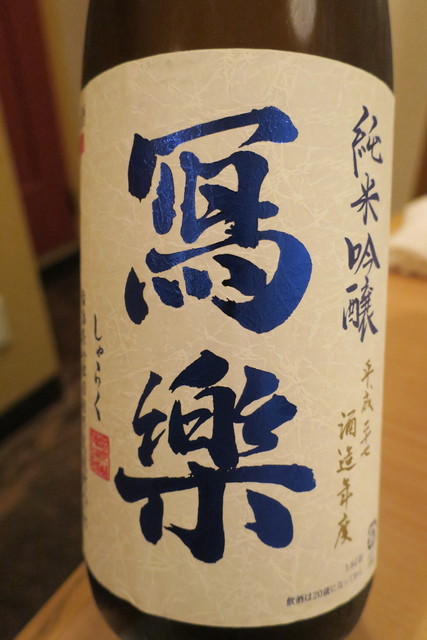 純米吟醸
平成二十七
酒造年度
寫樂
しゃらく
飲酒は20歳になってから